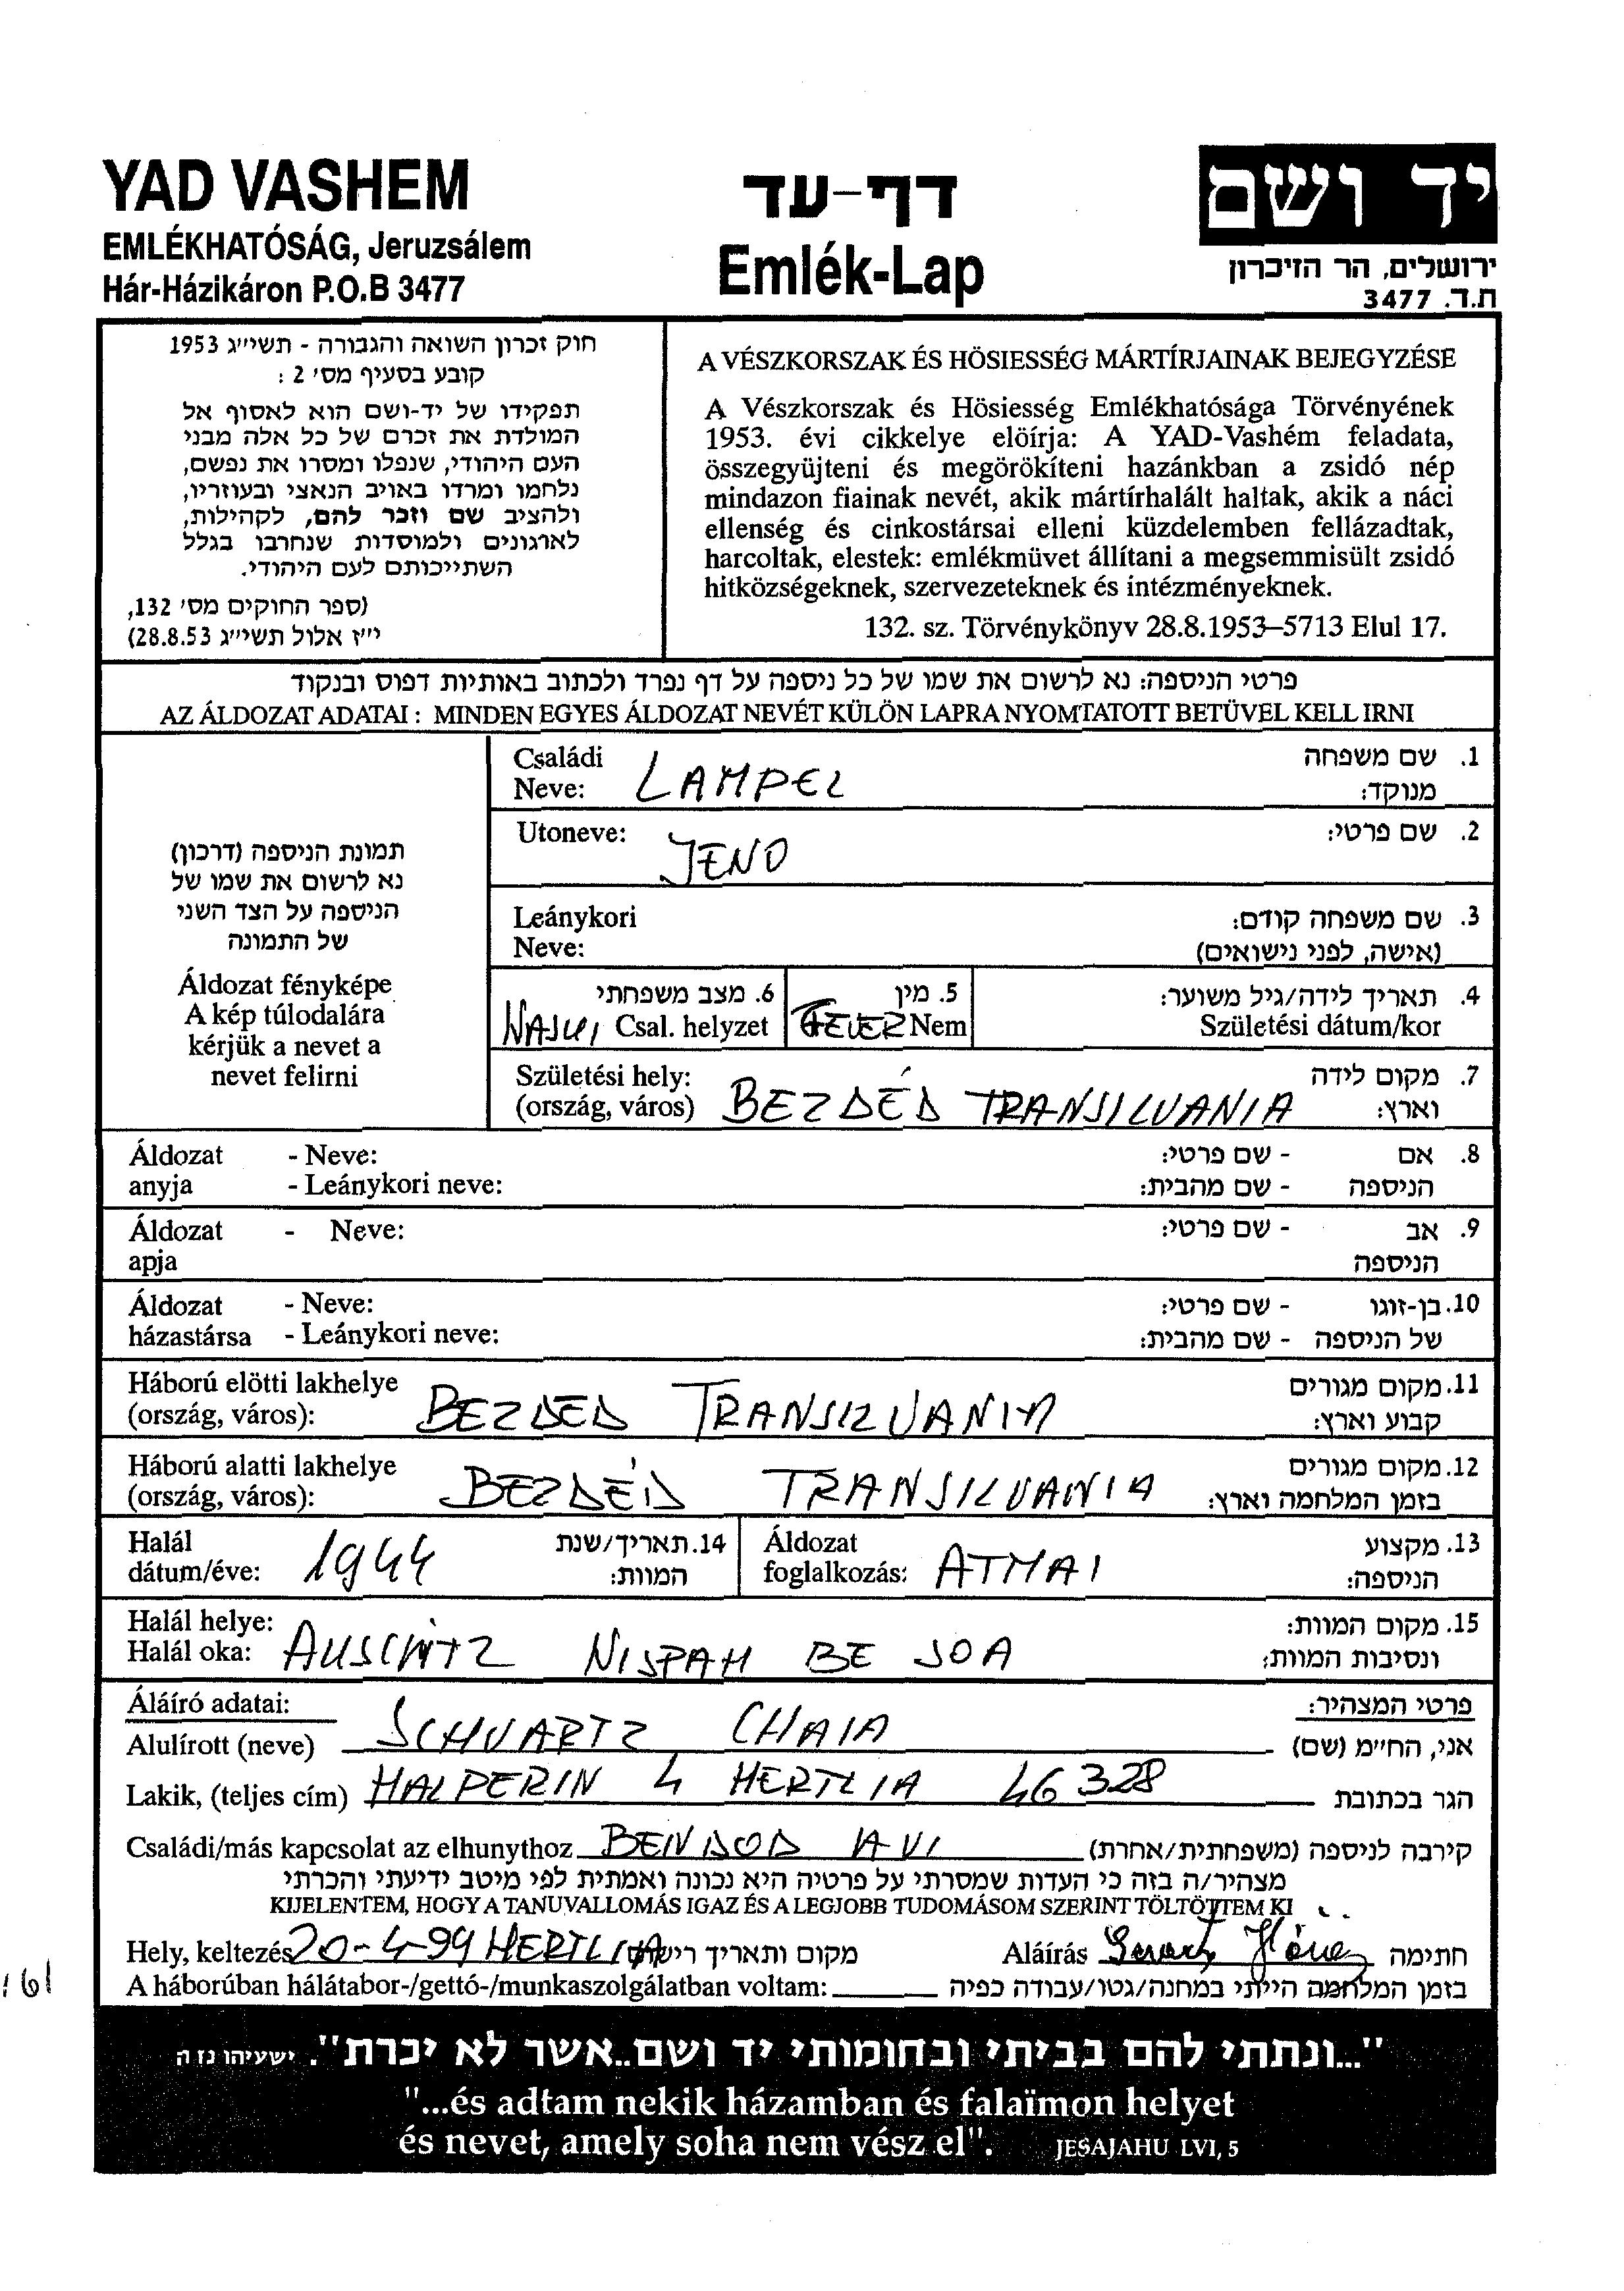 YAD VASHEM
EMLÉKHATÓSÁG, Jeruzsálem
Hár-Házikáron P.O.B 3477
דף-עד
Emlék-Lap
יד ושם
ירושלים, הר הזיכרון
ת.ד. 3477
חוק זכרון השואה והגבורה - תשי״ג 1953
קובע בסעיף מס׳ 2 :
תפקידו של יד-ושם הוא לאסוף אל
המולדת את זכרם של כל אלה מבני
העם היהודי, שנפלו ומסרו את נפשם,
נלחמו ומרדו באויב הנאצי ובעוזריו,
ולהציב שם וזכר להם, לקהילות,
לארגונים ולמוסדות שנחרבו בגלל
השתייכותם לעם היהודי.
(ספר החוקים מס׳ 132,
י״ז אלול תשי״ג 28.8.53)
A VÉSZKORSZAK ÉS HÖSIESSÉG MÁRTÍRJAINAK BEJEGYZÉSE
A Vészkorszak és Hösiesség Emlékhatósága Törvényének
1953. évi cikkelye elöírja: A YAD-Vashém feladata,
összegyüjteni és megörökíteni hazánkban a zsidó nép
mindazon fiainak nevét, akik mártírhalált haltak, akik a náci
ellenség és cinkostársai elleni küzdelemben fellázadtak,
harcoltak, elestek: emlékmüvet állítani a megsemmisült zsidó
hitközségeknek, szervezeteknek és intézményeknek.
132. sz. Törvénykönyv 28.8.1953–5713 Elul 17.
פרטי הניספה: נא לרשום את שמו של כל ניספה על דף נפרד ולכתוב באותיות דפוס ובנקוד
AZ ÁLDOZAT ADATAI : MINDEN EGYES ÁLDOZAT NEVÉT KÜLÖN LAPRA NYOMTATOTT BETÜVEL KELL IRNI
תמונת הניספה (דרכון)
נא לרשום את שמו של
הניספה על הצד השני
של התמונה
Áldozat fényképe
A kép túlodalára
kérjük a nevet a
nevet felirni
Családi
Neve: LAMPEL
1. שם משפחה
מנוקד:
Utoneve: JENO
2. שם פרטי:
Leánykori
Neve:
3. שם משפחה קודם:
(אישה, לפני נישואים)
6. מצב משפחתי
Csal. helyzet
5. מין
Nem
4. תאריך לידה/גיל משוער:
Születési dátum/kor
Születési hely:
(ország, város) BEZDÉD TRANSILVANIA
7. מקום לידה
וארץ:
Áldozat - Neve:
anyja - Leánykori neve:
8. אם - שם פרטי:
הניספה - שם מהבית:
Áldozat - Neve:
apja
9. אב - שם פרטי:
הניספה
Áldozat - Neve:
házastársa - Leánykori neve:
10. בן-זוגו - שם פרטי:
של הניספה - שם מהבית:
Háború elötti lakhelye
(ország, város): BEZDED TRANSILVANIA
11. מקום מגורים
קבוע וארץ:
Háború alatti lakhelye
(ország, város): BEZDÉD TRANSILVANIA
12. מקום מגורים
בזמן המלחמה וארץ:
Halál
dátum/éve: 1944
14. תאריך/שנת
המוות:
Áldozat
foglalkozás: ATMAI
13. מקצוע
הניספה:
Halál helye:
Halál oka: AUSCHITZ NISPAH BE SOA
15. מקום המוות:
ונסיבות המוות:
Áláíró adatai:
פרטי המצהיר:
Alulírott (neve) SCHVARTZ CHAIA אני, הח״מ (שם)
Lakik, (teljes cím) HALPERIN 4 HERTLIA 46328 הגר בכתובת
Családi/más kapcsolat az elhunythoz BENDOD AVI קירבה לניספה (משפחתית/אחרת)
מצהיר/ה בזה כי העדות שמסרתי על פרטיה היא נכונה ואמתית לפי מיטב ידיעתי והכרתי
KIJELENTEM, HOGY A TANUVALLOMÁS IGAZ ÉS A LEGJOBB TUDOMÁSOM SZERINT TÖLTÖTTEM KI
Hely, keltezés 20-4-99 HERTLIA מקום ותאריך Aláírás חתימה
A háborúban hálátabor-/gettó-/munkaszolgálatban voltam: בזמן המלחמה הייתי במחנה/גטו/עבודה כפיה
161
"...ונתתי להם בביתי ובחומותי יד ושם..אשר לא יכרת". ישעיהו נו ה
"...és adtam nekik házamban és falaïmon helyet
és nevet, amely soha nem vész el". JESAJAHU LVI, 5